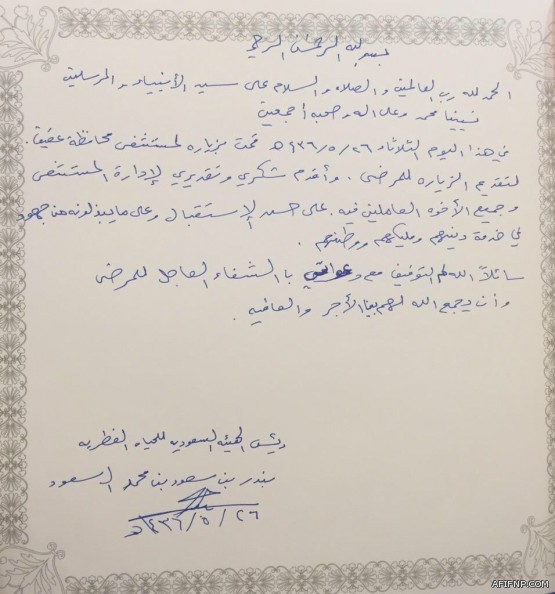 بسم الله الرحمن الرحيم
الحمد لله رب العالمين والصلاه والسلام على سيد الأنبياء والمرسلين
نبينا محمد وعلى اله وصحبه أجمعين
في هذا اليوم الثلاثاء ٢٦/٥/١٤٣٦هـ قمت بزياره لمستشفى محافظة عفيف.
لتقديم الزياره للمرضى. وأقدم شكري وتقديري لإدارة المستشفى
وجميع الأخوه العاملين فيه. على حسن الإستقبال وعلى مايبذلونه من جهود
في خدمة دينهم ومليكهم ووطنهم.
سائلاً الله لهم التوفيق مع دعواتي با الشفاء العاجل للمرضى
وأن يجمع الله لهم بين الأجر والعافيه.
رئيس الهيئه السعوديه للحياه الفطريه
بندر بن سعود بن محمد ال سعود
٢٦/٥/١٤٣٦هـ
AFIFNP.COM